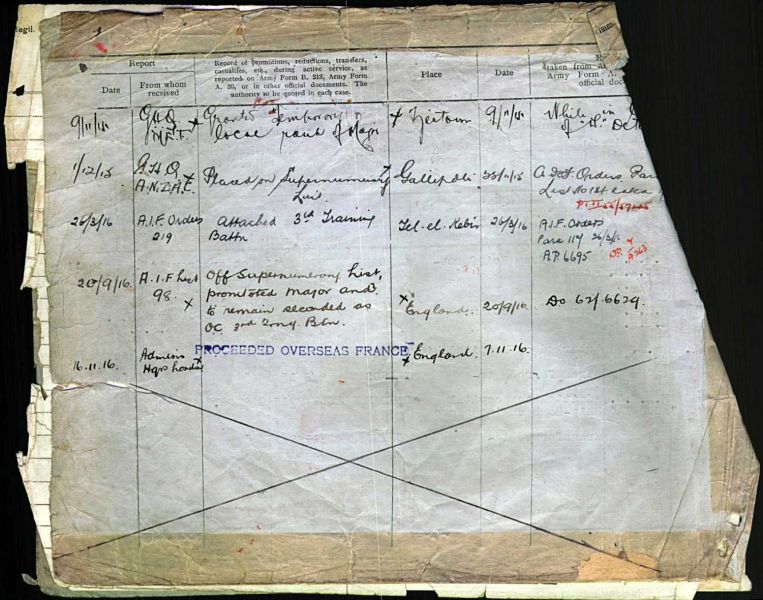 Regtl.
Report
Record of promotions, reductions, transfers,
casualties, etc., during active service, as
reported on Army Form B. 213, Army Form
A. 36, or in other official documents. The
authority to be quoted in each case.
Place
Date
taken from
Army Form A.
official doc
Date
From whom
received
9/11/15
G.H.Q.
M.E.F.
Granted Temporary
local rank of Major
Zeitoun
9/11/15
While in
of
1/12/15
G.H.Q.
Placed on Supernumerary
List
Gallipoli
A.I.F. Orders
List No
26/3/16
A.I.F. Orders
219
Attached 3rd Training
Battn
Tel-el-Kebir
26/3/16
A.I.F. Orders
Para 114 26/3/16
A.P. 6695
20/9/16.
A.I.F List
98.
Off Supernumerary List,
promoted Major and
to remain seconded as
OC 3rd Trng Btn.
England.
20/9/16.
Do 62/6629.
16.11.16.
Admins
Hqrs London
PROCEEDED OVERSEAS FRANCE
England.
7.11.16.